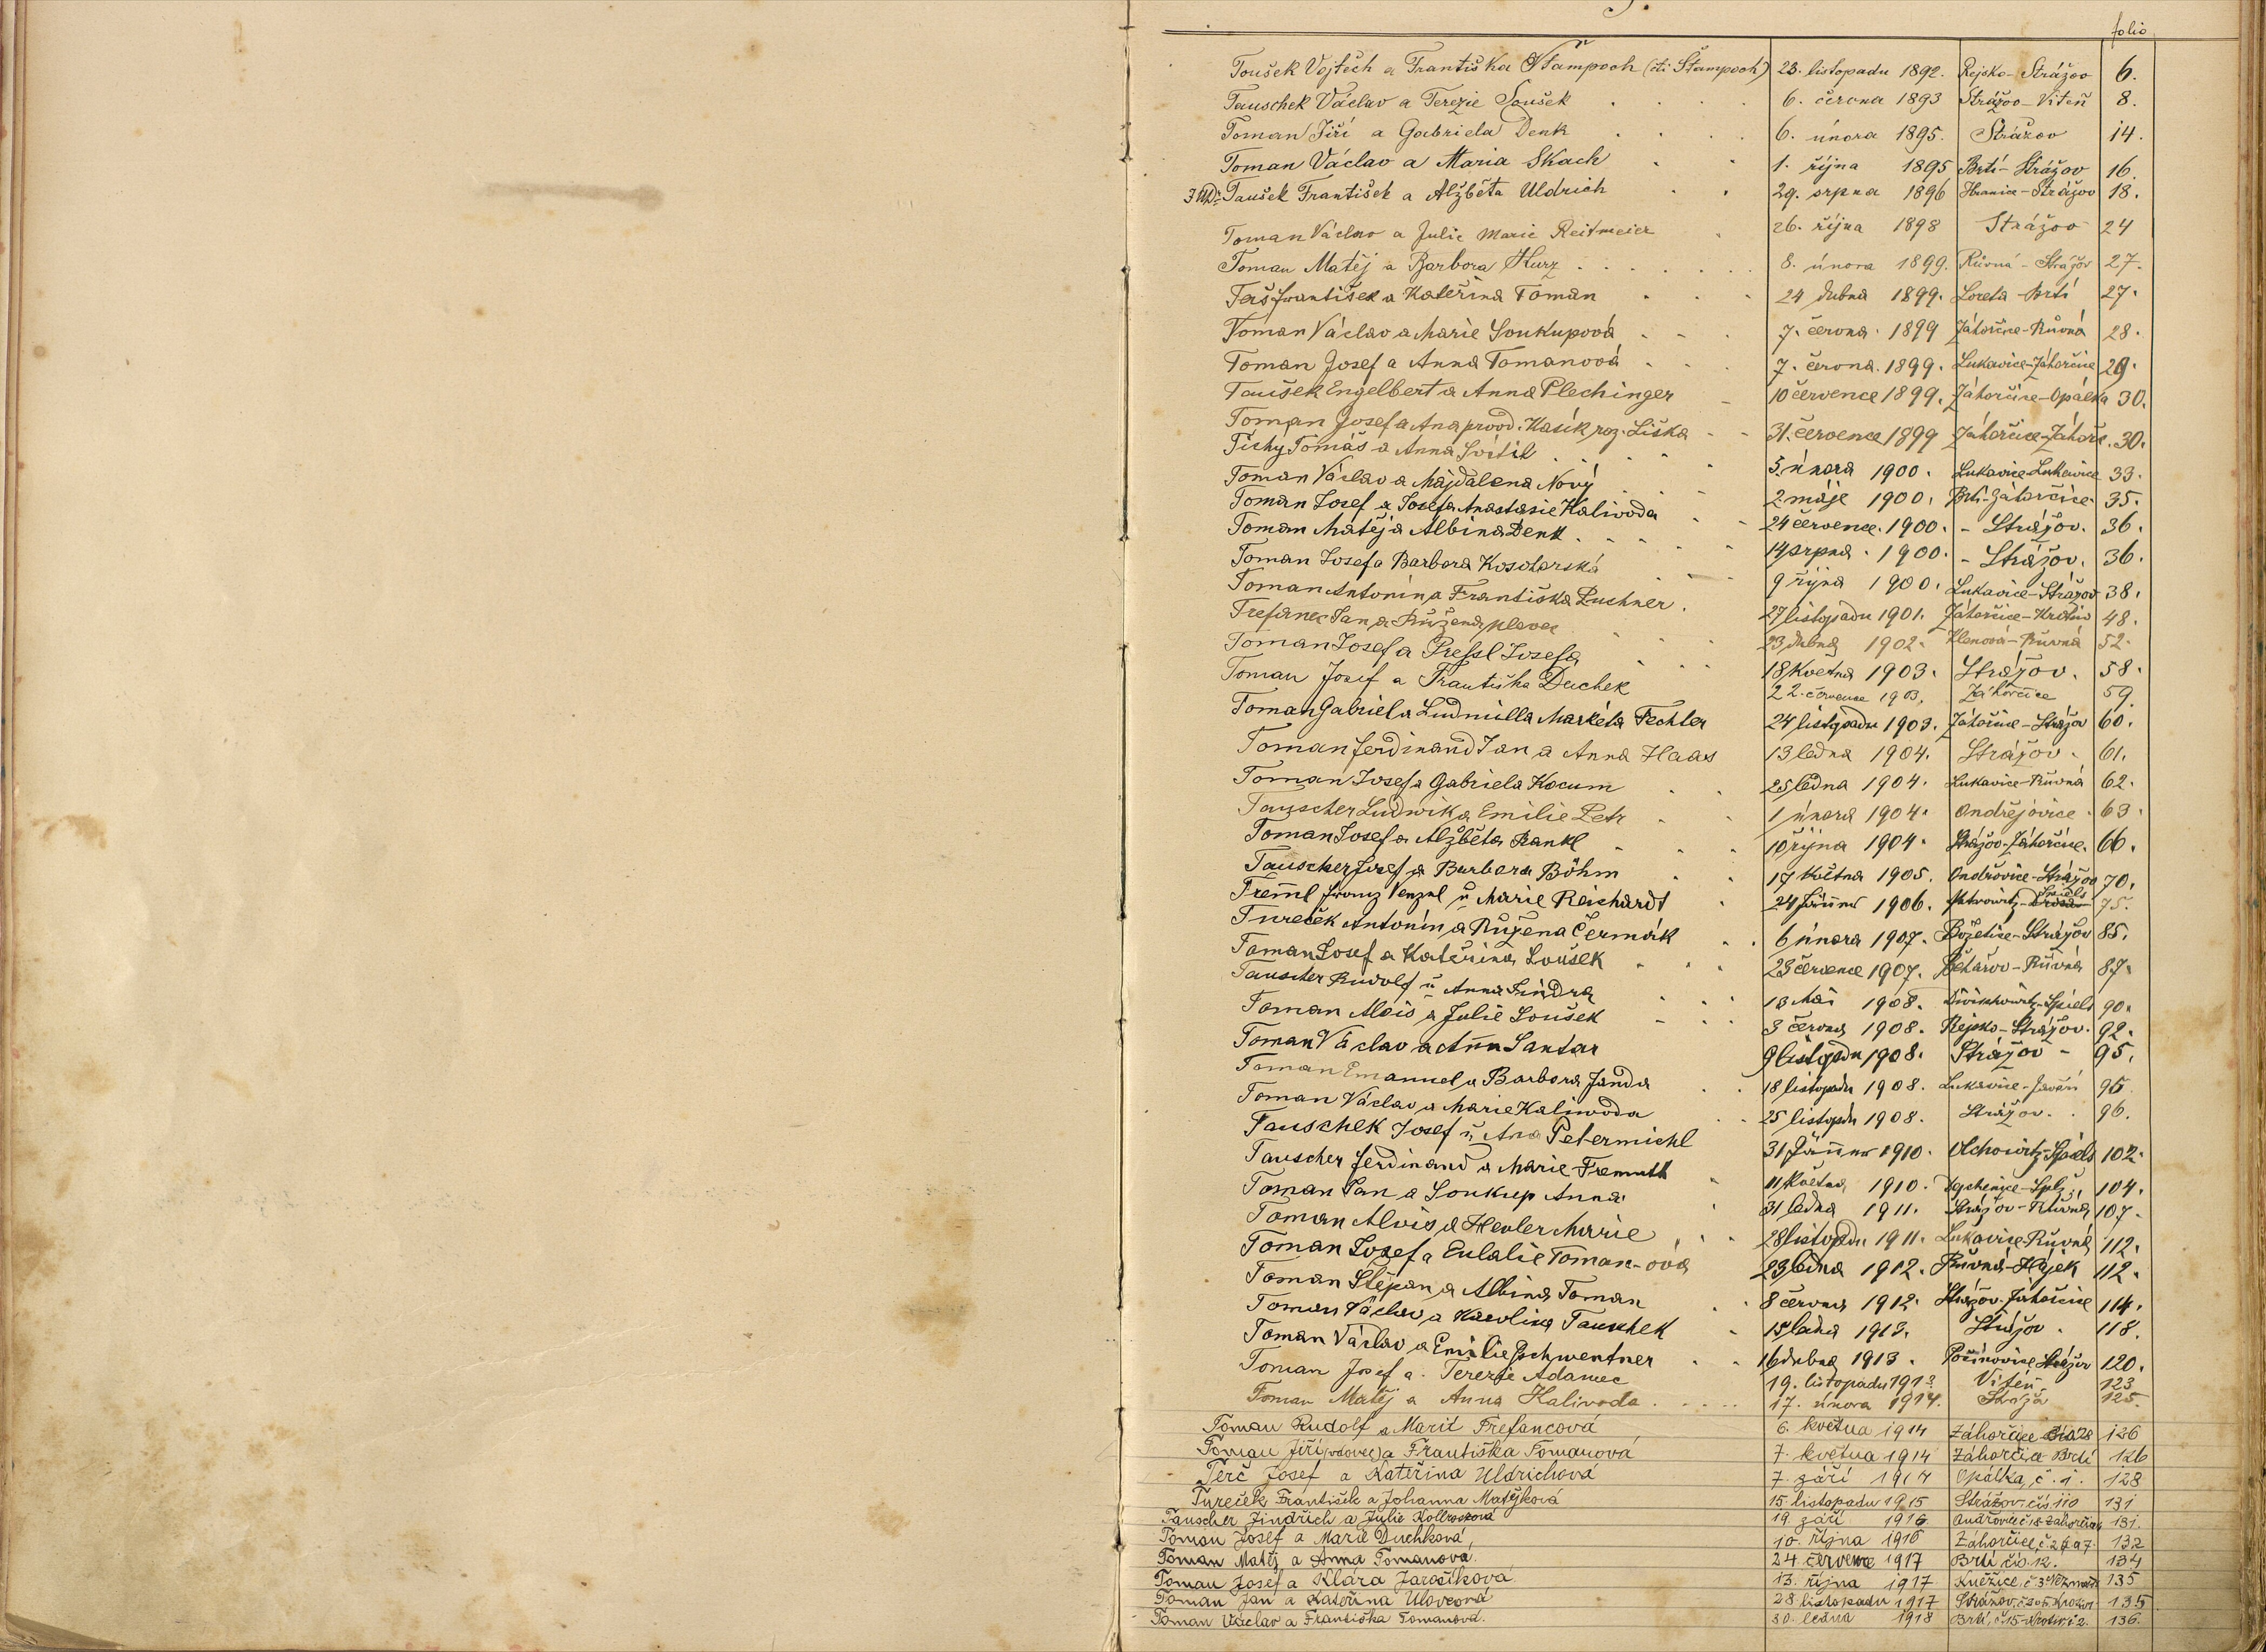 T.
folio
Toušek Vojtěch a Františka Stampach (čti Štampach) 23. listopadu 1892. Rejsko-Strážov 6.
Tauschek Václav a Terezie Soušek 6. června 1893 Strážov-Viteň 8.
Toman Jiří a Gabriela Denk 6. února 1895. Strážov 14.
Toman Václav a Maria Skach 1. října 1895 Brtí-Strážov 16.
Taušek František a Alžběta Uldrich 29. srpna 1896 Hranice-Strážov 18.
Toman Václav a Julie Marie Reitmeier 26. října 1898 Strážov 24
Toman Matěj a Barbora Kurz 8. února 1899. Růvná-Strážov 27.
František a Kateřina Toman 24 dubna 1899. Loreta-Brtí 27.
Toman Václav a Marie Soukupová 7. června 1899 Záhorčice-Růvná 28.
Toman Josef a Anna Tomanová 7. června. 1899. Lukavice-Záhorčice 29.
Taušek Engelbert a Anna Plechinger 10 července 1899. Záhorčice-Opálka 30.
Toman Josef a Ana provd. Kasík roz. Liška 31. července 1899 Záhorčice-Záhorč. 30.
Tichý Tomáš a Anna Svítil 5. února 1900. Lukavice-Lukavice 33.
Toman Václav a Majdalena Nový 2. máje 1900. Brtí-Záhorčice 35.
Toman Josef a Josefa Anastasie Kalivoda 24 července. 1900. - Strážov. 36.
Toman Matěj a Albina Denk 14 srpna. 1900. - Strážov. 36.
Toman Josef a Barbora Kosotarská 9 října 1900. Lukavice-Strážov 38.
Toman Antonín a Františka Puchner. 27 listopadu 1901. Záhorčice-Krotiv 48.
Trefanec Jan a Růžena plevec 23 dubna 1902. Klenová-Růvná 52.
Toman Josef a Pressl Josefa 18 května 1903. Strážov. 58.
Toman Josef a Františka Duchek 22. července 1903. Záhorčice 59.
Toman Gabriel a Ludmilla Markéta Fechter 24 listopadu 1903. Záhorčice-Strážov 60.
Toman Ferdinand Jan a Anna Haas 13 ledna 1904. Strážov. 61.
Toman Josef a Gabriela Kocum 25 ledna 1904. Lukavice-Růvná 62.
Tauscher Ludwik a Emilie Petr 1 února 1904. Ondřejovice. 63.
Toman Josef a Alžběta Rankl 10 října 1904. Strážov-Záhorčice. 66.
Tauscher Josef a Barbora Böhm 17 května 1905. Ondřovice-Strážov 70.
Treml Franz Venzel u Marie Reichardt 24 Jänner 1906. 75.
Tureček Antonín a Růžena Čermák 6 února 1907. Božetice-Strážov 85.
Toman Josef a Kateřina Loušek 23 července 1907. Běhařov-Růvná 87.
Tauscher Rudolf u Anna Šindra 18 Mai 1908. 90.
Toman Alois a Julie Loušek 3 června 1908. Rejsko-Strážov. 92.
Toman Václav a Anna Santar 9 listopadu 1908. Strážov - 95.
Toman Emanuel a Barbora Janda 18 listopadu 1908. Lukavice-Javoří 95
Toman Václav a Marie Kaliwoda 25 listopadu 1908. Strážov. 96.
Tauschek Josef u Ana Petermichl 31 Jänner 1910. 102.
Tauscher Ferdinand a Marie Fremuth 11 května 1910. 104.
Toman Jan a Soukup Anna 31 ledna 1911. Strážov-Růvná 107.
Toman Alois a Hevler Marie 28 listopadu 1911. Lukavice-Růvná 112.
Toman Josef a Eulalie Toman-ová 23 ledna 1912. Růvná-Hájek 112.
Toman Štěpan a Albina Toman 8 června 1912. Strážov-Záhorčice 114.
Toman Václav a Karolina Tauschek 15 ledna 1913. Strážov. 118.
Toman Václav a Emilie Gschwentner 16 dubna 1913. Pocínovice Strážov 120.
Toman Josef a. Terezie Adamec 19. listopadu 1913 Viteň 123
Toman Matěj a Anna Kalivoda 17. února 1914. Stráža 125.
Toman Rudolf a Marie Trefancová 6. května 1914 Záhorčice 28 126
Toman Jiří (vdovec) a Františka Tomanová 7. května 1914 Záhorčice Brtí 126
Terč Josef a Kateřina Uldrichová 7. září 1914 Opálka, č. 1. 128
Tureček František a Johanna Matějková 15. listopadu 1915 Strážov čís 110 131
Tauscher Jindřich a Julie Kollrosová 19. září 1916 131.
Toman Josef a Marie Duchková 10. října 1916 Záhorčice, č. 26 a 7. 132
Toman Matěj a Anna Tomanová. 24. července 1917 Brtí čís. 12. 134
Toman Josef a Klára Jarošíková. 13. října 1917 Kněžice. č. 3 135
Toman Jan a Kateřina Ulovcová 28. listopadu 1917 135
Toman Václav a Františka Tomanová. 30. ledna 1918 Brtí, č. 15-Krotiv. č 2. 136.